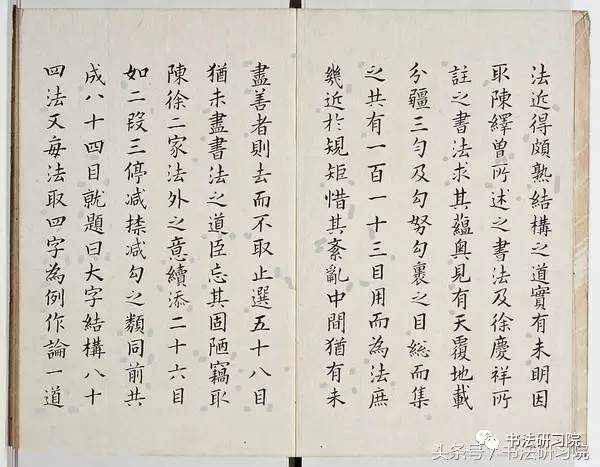 法近得頗熟結構之道實有未明因
取陳繹曾所述之書法及徐慶祥所
註之書法求其蘊奥見有天覆地載
分疆三勻及勾努勾裹之目総而集
之共有一百一十三目用而為法庶
幾近於規矩惜其紊亂中間猶有未
盡善者則去而不取止選五十八目
猶未盡書法之道臣忘其固陋竊取
陳徐二家法外之意續添二十六目
如二段三停减捺减勾之類同前共
成八十四目就題曰大字結構八十
四法又每法取四字為例作論一道
书法研习院
头条号/书法研习院